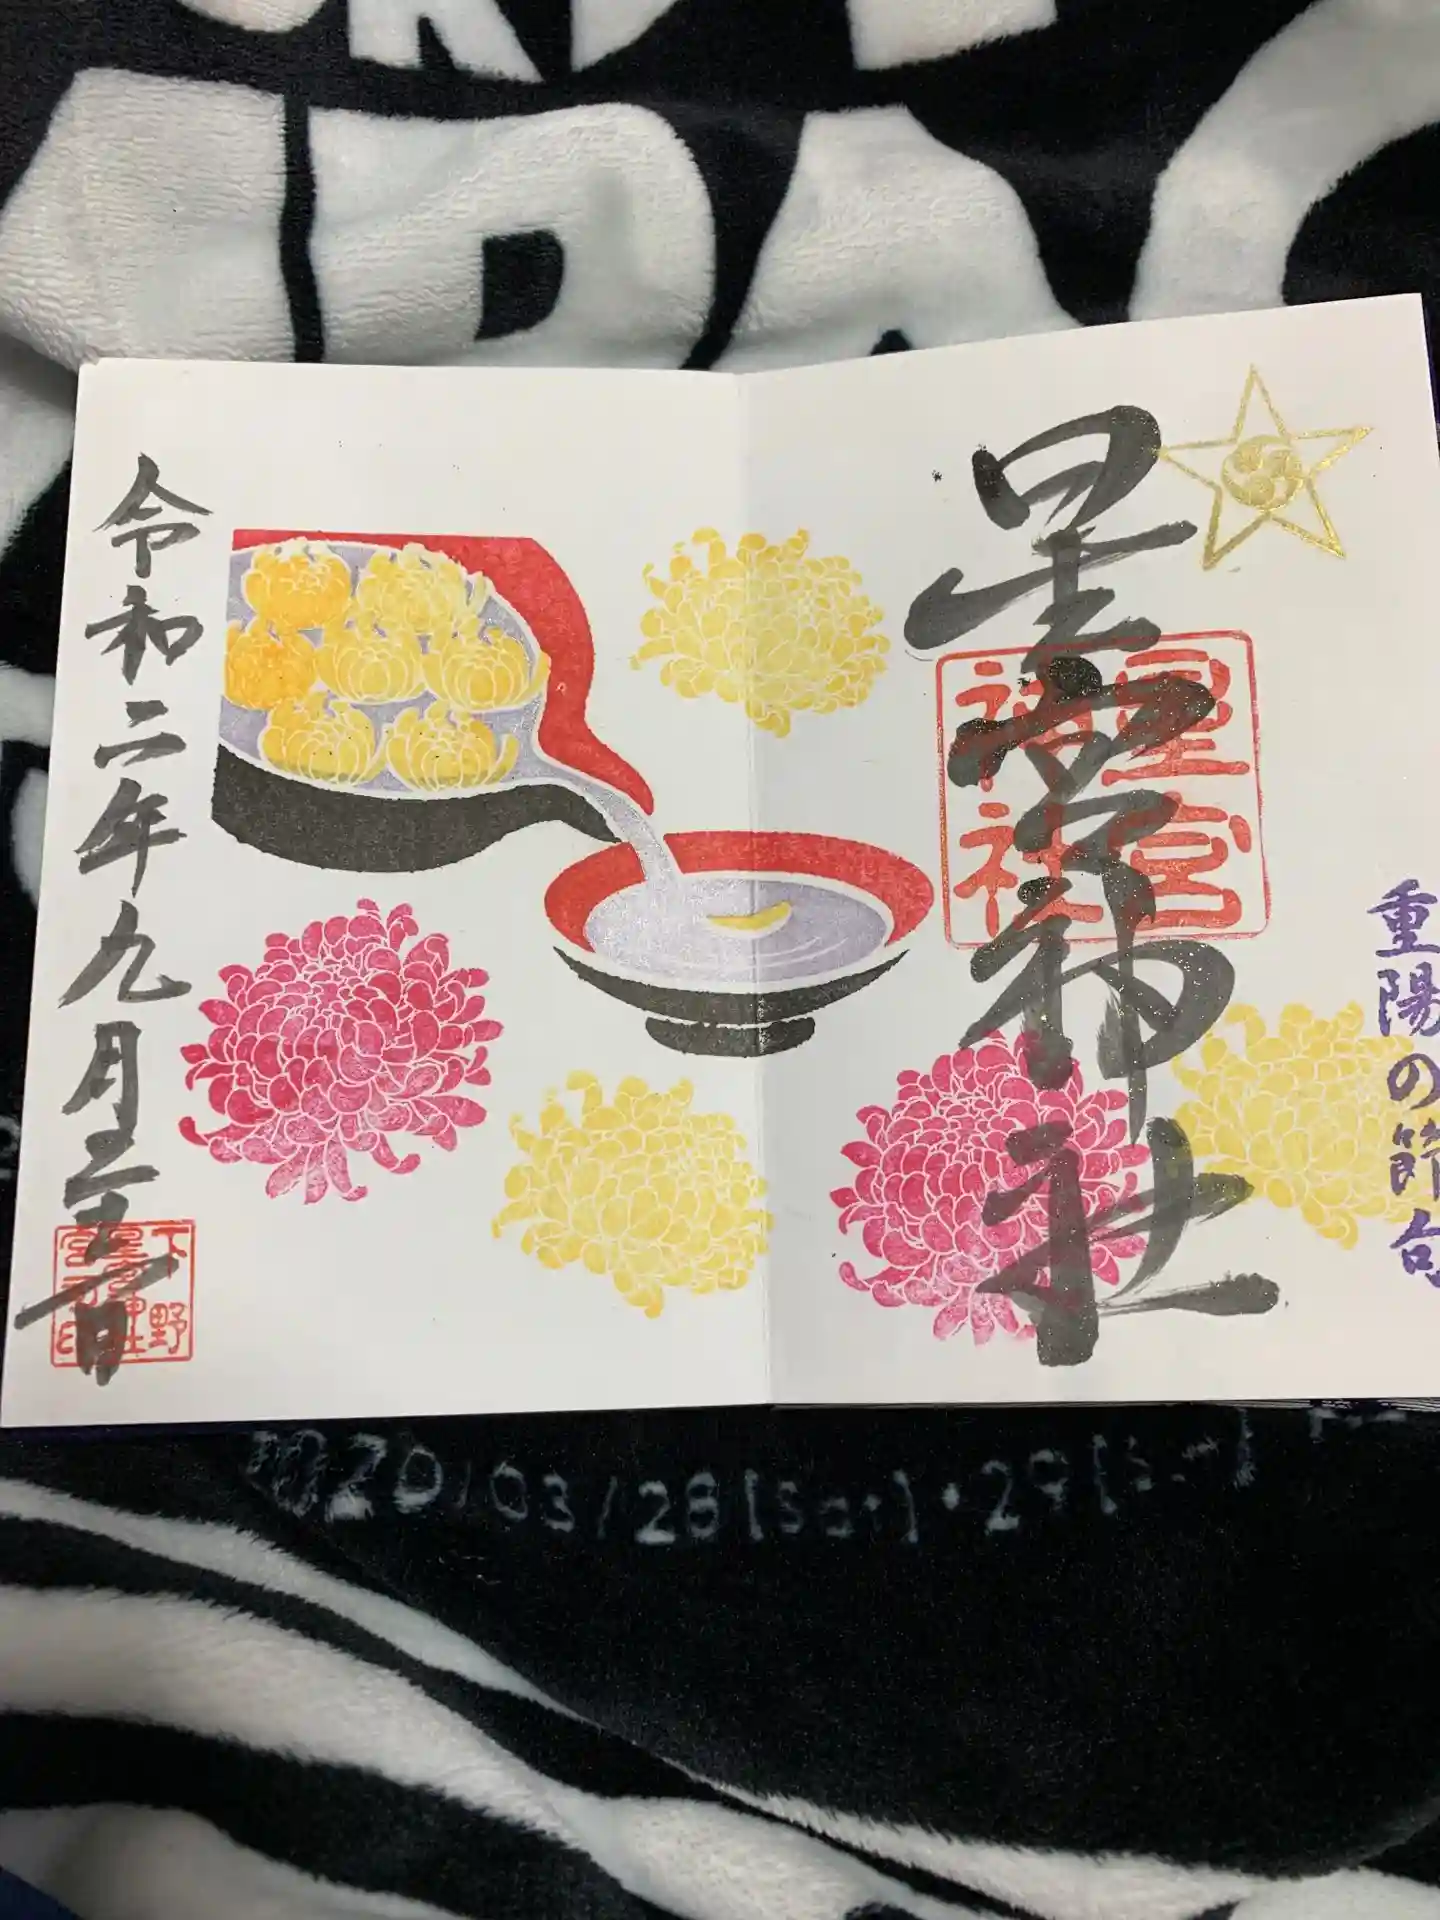 重陽の節句
星宮神社
星宮
神社
令和二年九月二十一日
下野
星宮神社
2020/03/28(Sat)・29(Sun)